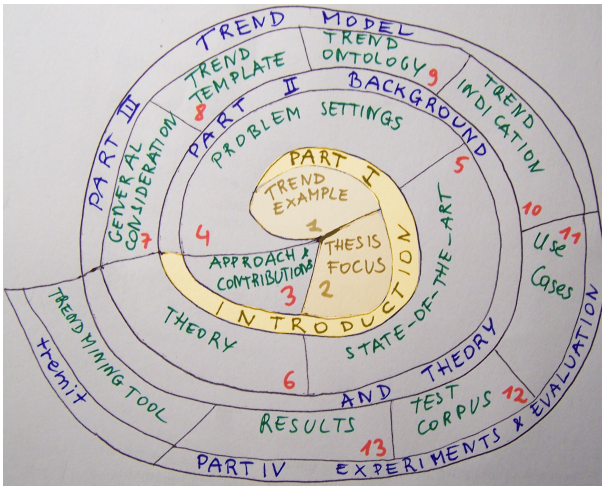 PART I
INTRODUCTION
TREND
EXAMPLE
1
THESIS
FOCUS
2
APPROACH &
CONTRIBUTIONS
3
PART II
BACKGROUND
AND THEORY
PROBLEM SETTINGS
4
STATE-OF-THE-ART
5
THEORY
6
PART III
TREND MODEL
GENERAL
CONSIDERATION
7
TREND
TEMPLATE
8
TREND
ONTOLOGY
9
TREND
INDICATION
10
PART IV
EXPERIMENTS & EVALUATION
USE
CASES
11
TEST
CORPUS
12
RESULTS
13
TREND MINING TOOL
tremit